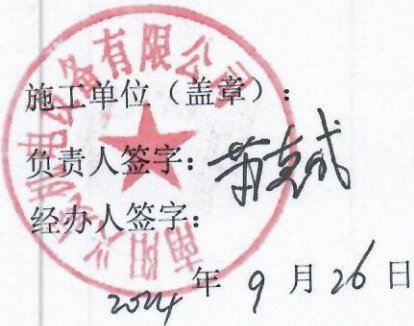 南阳 机电设备有限公司
施工单位（盖章）：
负责人签字：
经办人签字：
2024 年 9 月 26 日